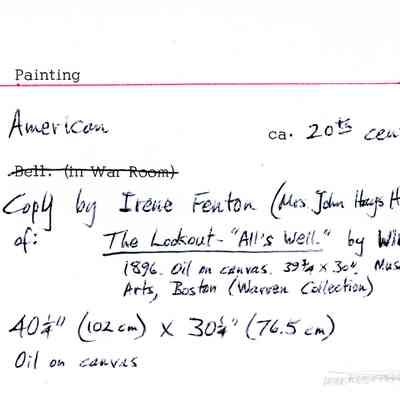 Painting
American ca. 20th cen
Bell: (in War Room)
Copy by Irene Fenton (Mrs. John Hays H
of: The Lookout - "All's Well." by Wi
1896. Oil on canvas. 39 3/4 x 30". Mus
Arts, Boston (Warren Collection)
40 1/4" (102 cm) x 30 1/4" (76.5 cm)
Oil on canvas